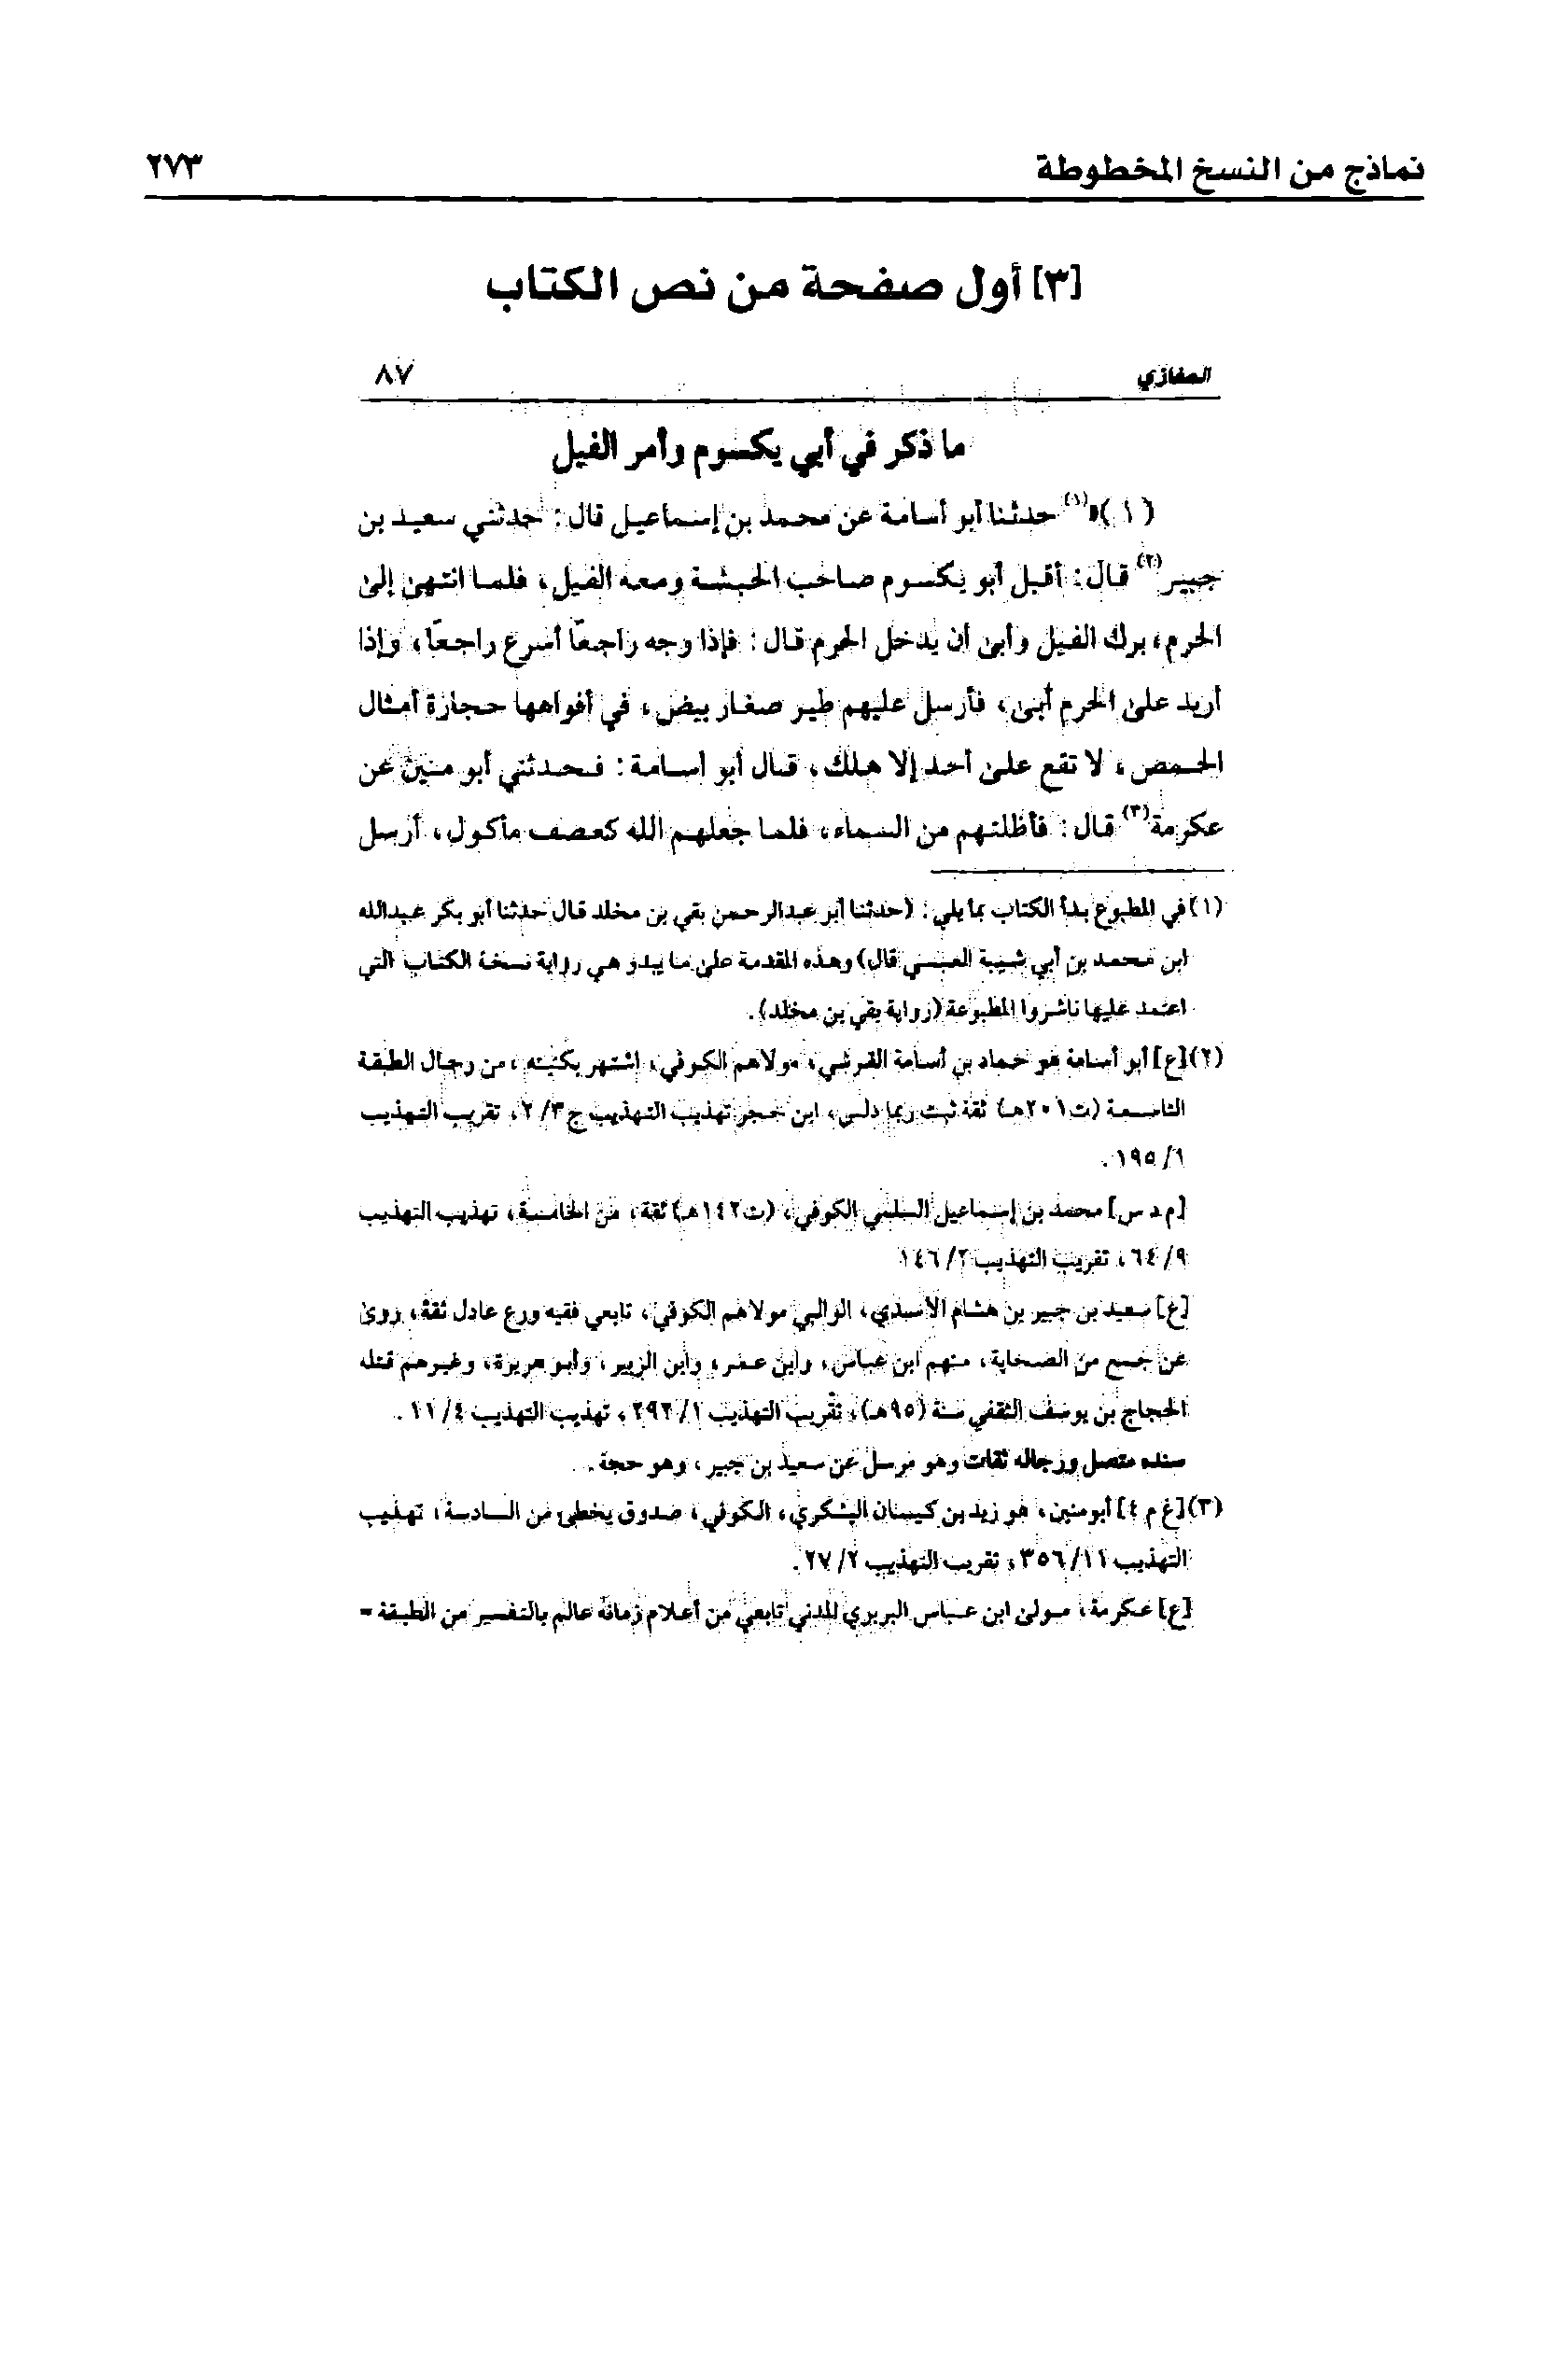 نماذج من النسخ المخطوطة ٢٧٣
[٣] أول صفحة من نص الكتاب
المغازي ٨٧
ما ذكر في أبي يكسوم وأمر الفيل
(١)(١) حدثنا أبو أسامة عن محمد بن إسماعيل قال: حدثني سعيد بن
جبير(٢) قال: أقبل أبو يكسوم صاحب الحبشة ومعه الفيل، فلما انتهى إلى
الحرم، برك الفيل وأبى أن يدخل الحرم قال: فإذا وجه راجعًا أسرع راجعًا، وإذا
أريد على الحرم أبى، فأرسل عليهم طير صغار بيض، في أفواهها حجارة أمثال
الحمص، لا تقع على أحد إلا هلك، قال أبو أسامة: فحدثني أبو منين عن
عكرمة(٣) قال: فأظلتهم من السماء، فلما جعلهم الله كعصف مأكول، أرسل
(١) في المطبوع بدأ الكتاب بما يلي: (حدثنا أبو عبدالرحمن بقي بن مخلد قال حدثنا أبو بكر عبدالله
ابن محمد بن أبي شيبة العبسي قال) وهذه المقدمة على ما يبدو هي رواية نسخة الكتاب التي
اعتمد عليها ناشروا المطبوعة (رواية بقي بن مخلد).
(٢) [ع] أبو أسامة هو حماد بن أسامة القرشي، مولاهم الكوفي، اشتهر بكنيته، من رجال الطبقة
التاسعة (ت٢٠١هـ) ثقة ثبت ربما دلس، ابن حجر تهذيب التهذيب ج٣/ ٢، تقريب التهذيب
١/ ١٩٥.
[م د س] محمد بن إسماعيل السلمي الكوفي، (ت١٤٢هـ) ثقة، من الخامسة، تهذيب التهذيب
٩/ ٦٤، تقريب التهذيب ٢/ ١٤٦
[ع] سعيد بن جبير بن هشام الأسدي، الوالبي مولاهم الكوفي، تابعي فقيه ورع عادل ثقة، روى
عن جمع من الصحابة، منهم ابن عباس، وابن عمر، وابن الزبير، وأبو هريرة، وغيرهم قتله
الحجاج بن يوسف الثقفي سنة (٩٥هـ)، تقريب التهذيب ١/ ٢٩٢، تهذيب التهذيب ٤/ ١١.
سنده متصل ورجاله ثقات وهو مرسل عن سعيد بن جبير، وهو حجة.
(٣) [ع م ٤] أبو منين، هو زيد بن كيسان اليشكري، الكوفي، صدوق يخطئ من السادسة، تهذيب
التهذيب ١١/ ٣٥٦، تقريب التهذيب ٢/ ٢٧.
[ع] عكرمة، مولى ابن عباس البربري المدني تابعي من أعلام زمانه عالم بالتفسير من الطبقة =